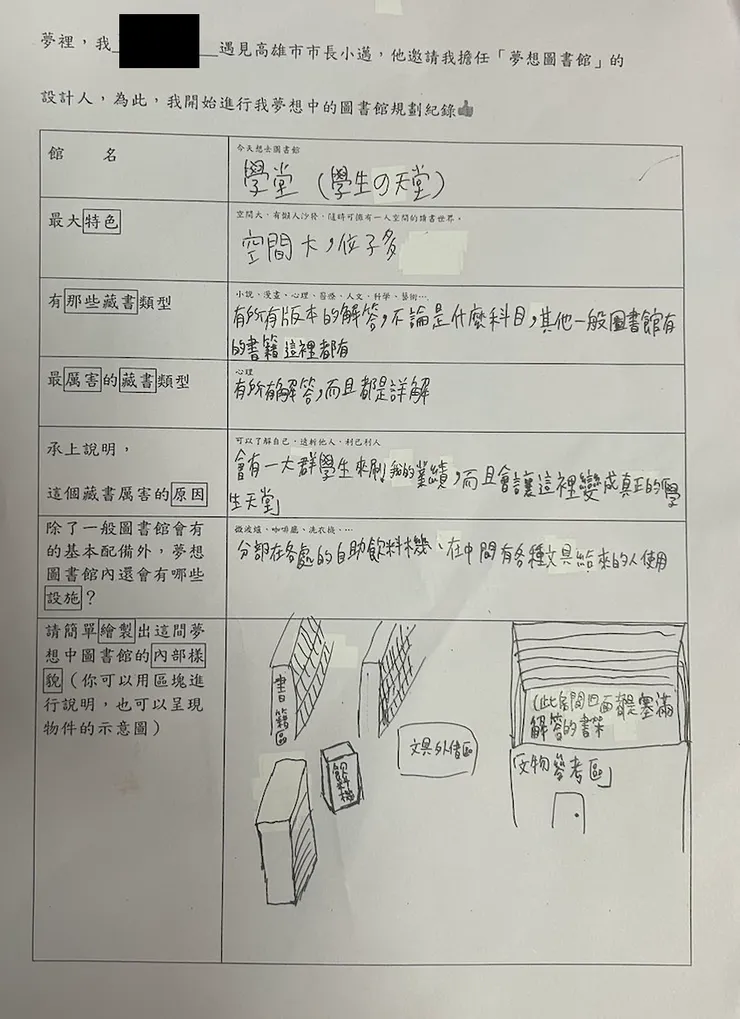 夢裡，我 遇見高雄市市長小邁，他邀請我擔任「夢想圖書館」的
設計人，為此，我開始進行我夢想中的圖書館規劃紀錄👍
館 名
今天想去圖書館
學堂（學生の天堂）
最大特色
空間大，有懶人沙發，隨時可擁有一人空間的讀書世界。
空間大，位子多
有那些藏書類型
小說、漫畫、心理、醫療、人文、科學、藝術…
有所有版本的解答，不論是什麼科目，其他一般圖書館有
的書籍這裡都有
最厲害的藏書類型
心理
有所有解答，而且都是詳解
承上說明，
這個藏書厲害的原因
可以了解自己，透析他人，利己利人
會有一大群學生來刷我的業績，而且會讓這裡變成真正的「學
生天堂」
除了一般圖書館會有
的基本配備外，夢想
圖書館內還會有哪些
設施？
微波爐、咖啡廳、洗衣機，…
分部在各處的自助飲料機、在中間有各種文具給來的人使用
請簡單繪製出這間夢
想中圖書館的內部樣
貌（你可以用區塊進
行說明，也可以呈現
物件的示意圖）
書籍區
飲料機
文具外借區
（此房間四面都是塞滿
解答的書架
「文物參考區」